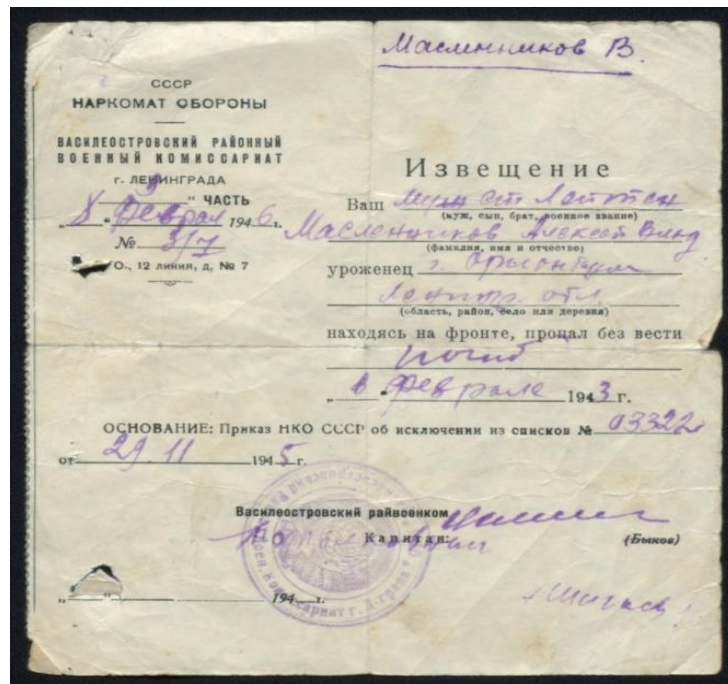 Масленников В.
СССР
НАРКОМАТ ОБОРОНЫ
ВАСИЛЕОСТРОВСКИЙ РАЙОННЫЙ
ВОЕННЫЙ КОМИССАРИАТ
г. ЛЕНИНГРАДА
" ЧАСТЬ
„ 8 " Феврал 1946 г.
№ 3/7
О., 12 линия, д. № 7
Извещение
Ваш муж ст. Лейтен
(муж, сын, брат, военное звание)
Масленников Алексей Влад
(фамилия, имя и отчество)
уроженец г.
отл
(область, район, село или деревня)
находясь на фронте, пропал без вести
погиб
в феврале 1943 г.
ОСНОВАНИЕ: Приказ НКО СССР об исключении из списков № 03322
от 29.11 1945 г.
Василеостровский райвоенком
Капитан:
(Быков)
„ " 194 г.